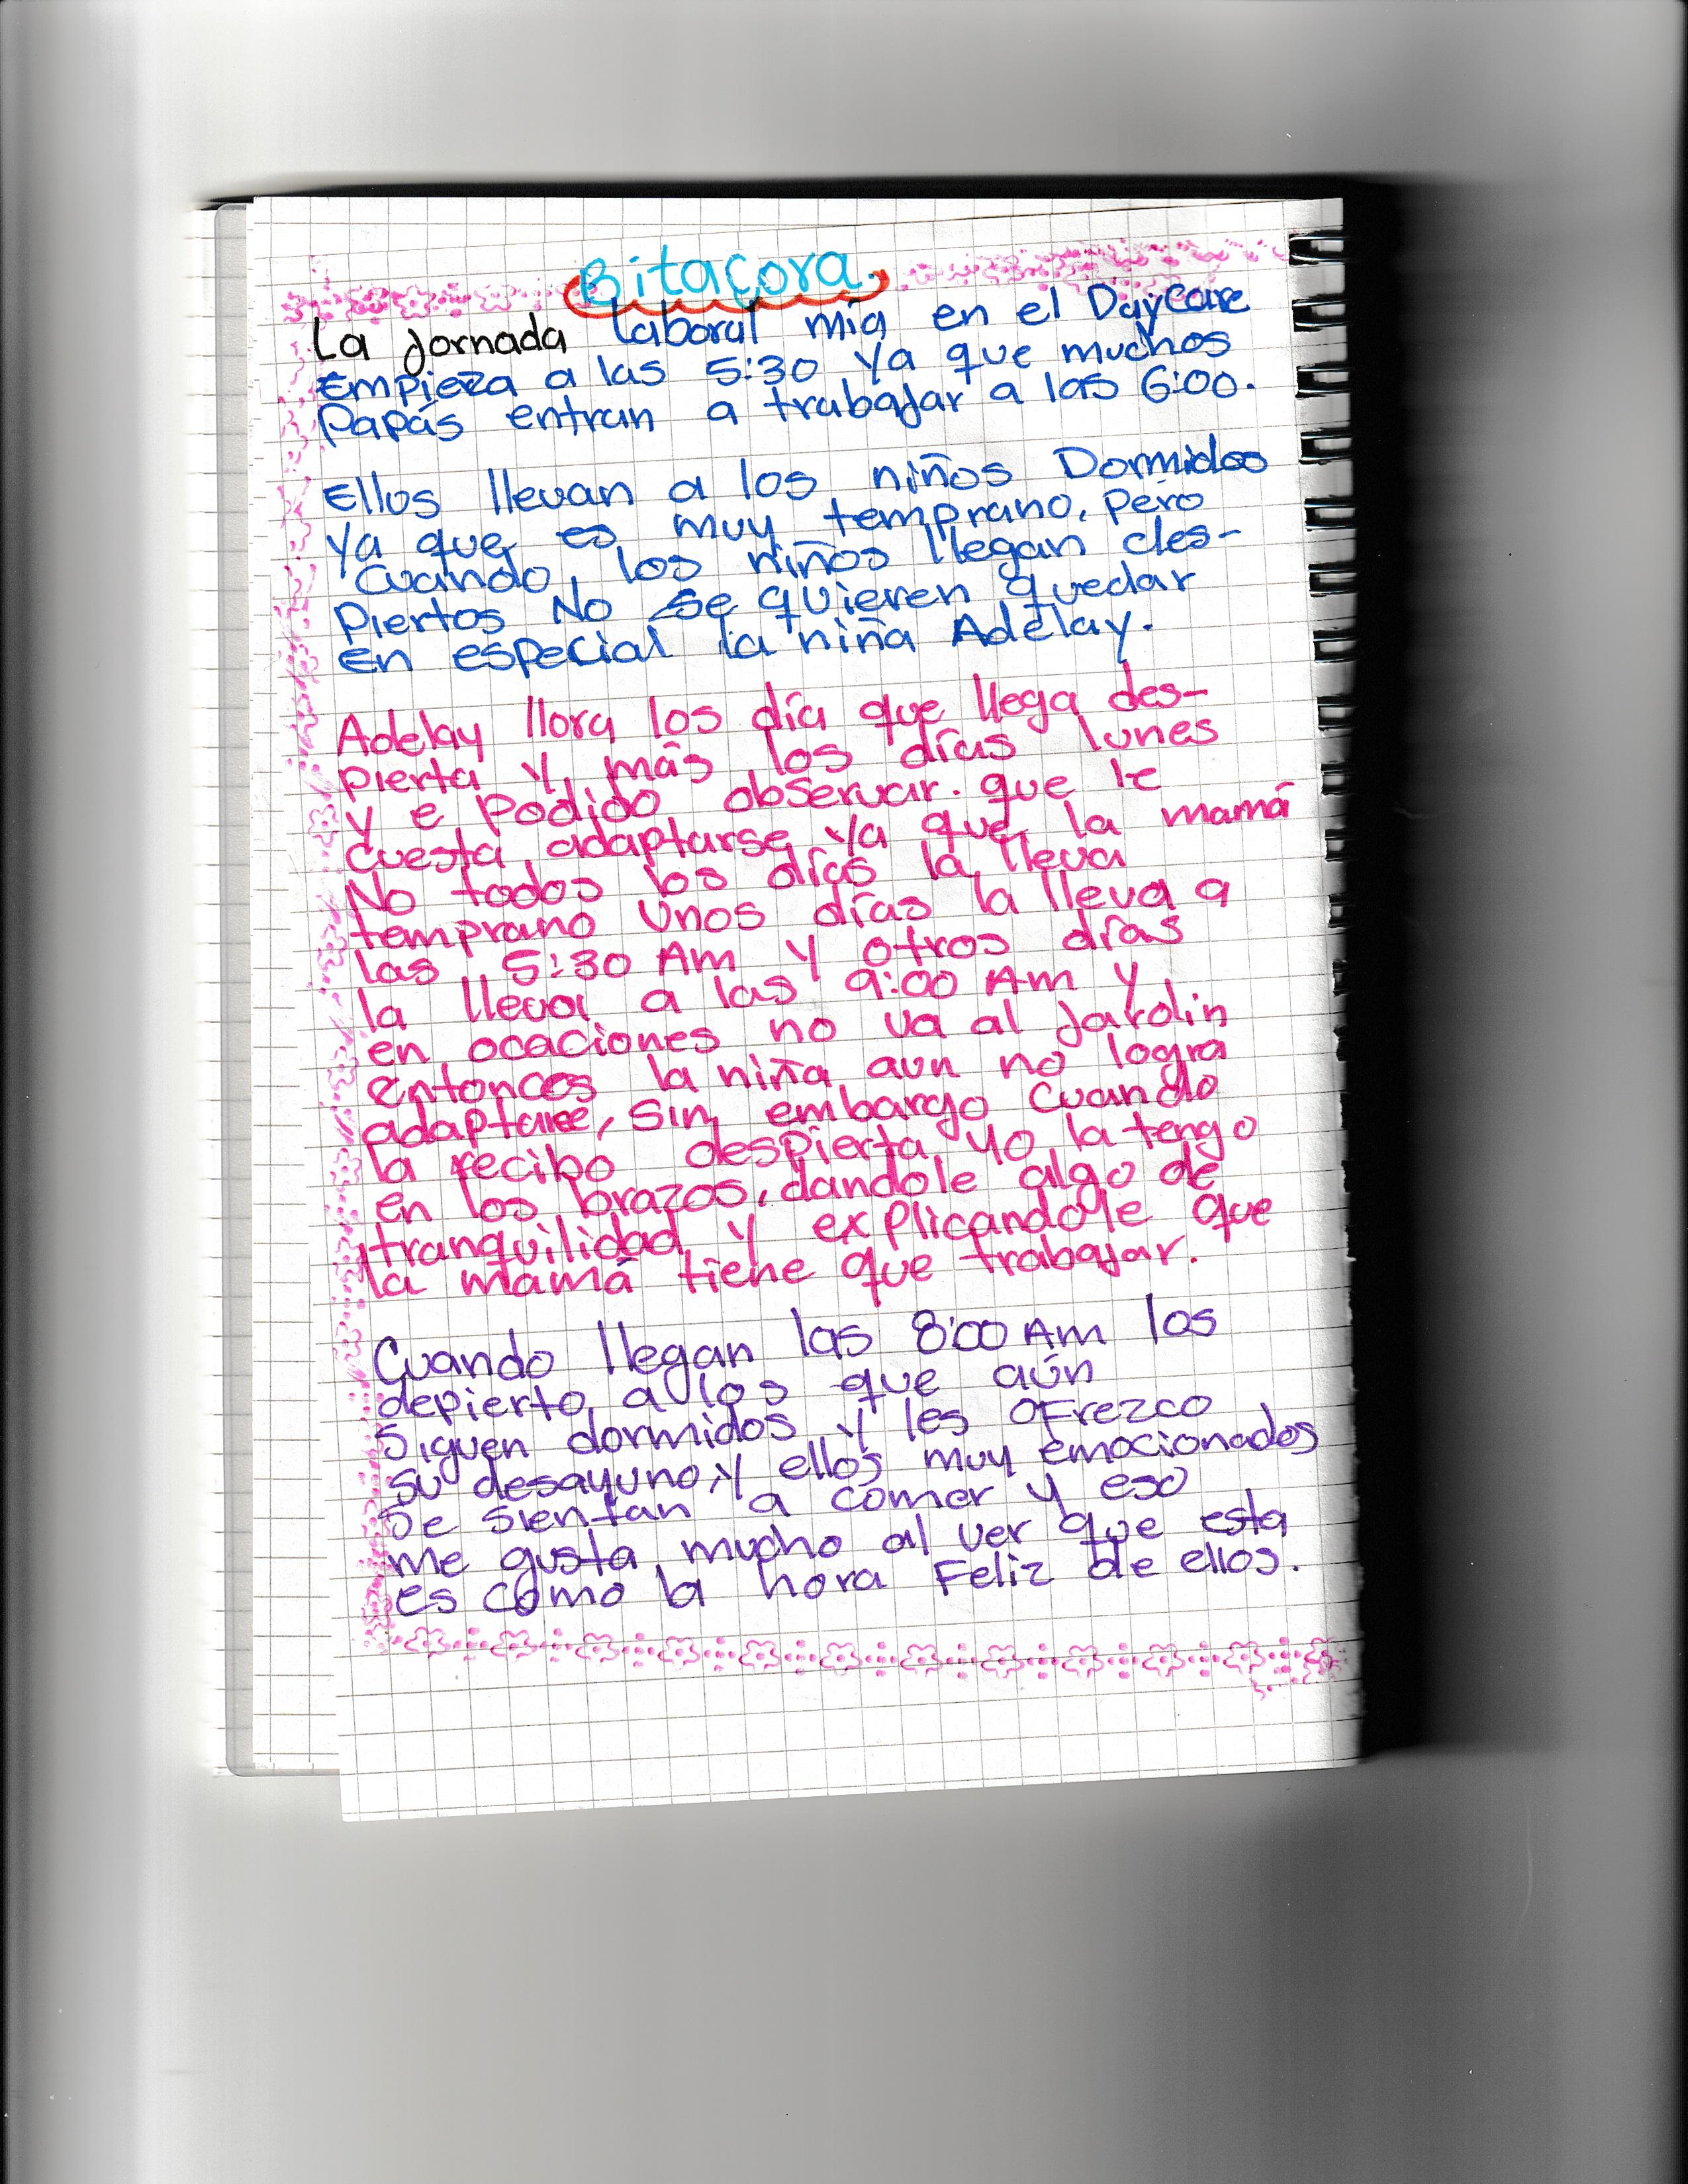 Bitacora.
La jornada laboral mía en el DayCare
Empieza a las 5:30 Ya que muchos
Papás entran a trabajar a las 6:00.
Ellos llevan a los niños Dormidos
Ya que es muy temprano, pero
Cuando los niños llegan des-
piertos No se quieren quedar
En especial la niña Adelay.
Adelay llora los día que llega des-
pierta y más los días lunes
y e podido observar. que le
cuesta adaptarse ya que la mamá
No todos los días la lleva
temprano Unos días la lleva a
las 5:30 Am y otros días
la lleva a las 9:00 Am y
en ocaciones no va al Jardin
entonces la niña aun no logra
adaptarse, sin embargo cuando
la recibo despierta yo la tengo
en los brazos, dandole algo de
tranquilidad y explicandole que
la mamá tiene que trabajar.
Cuando llegan las 8:00 Am los
depierto a los que aún
siguen dormidos y les ofrezco
su desayuno, y ellos muy emocionados
se sientan a comer y eso
me gusta mucho al ver que esta
es como la hora Feliz de ellos.